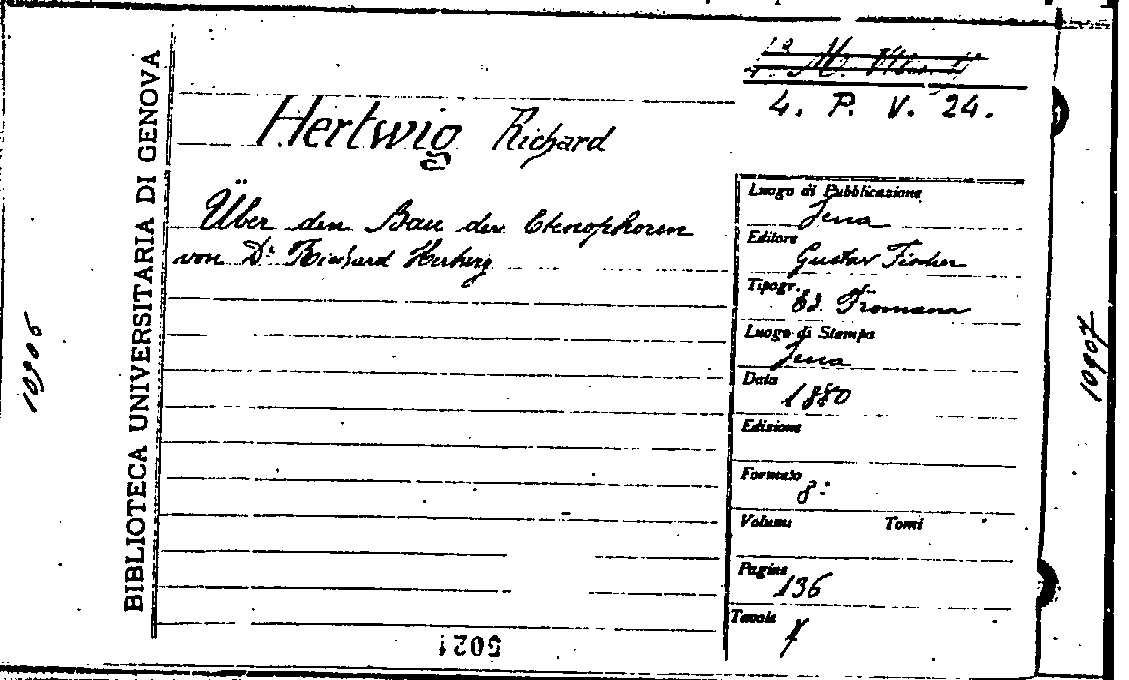 4. P. V. 24.
Hertwig Richard
Über den Bau der Ctenophoren
von Dr Richard Hertwig
BIBLIOTECA UNIVERSITARIA DI GENOVA
10906
10907
Luogo di Pubblicazione
Jena
Editore
Gustav Fischer
Tipogr.
Ed. Fromann
Luogo di Stampa
Jena
Data
1880
Edizione
Formato
8:
Volumi Tomi
Pagine
136
Tavole
7
5021